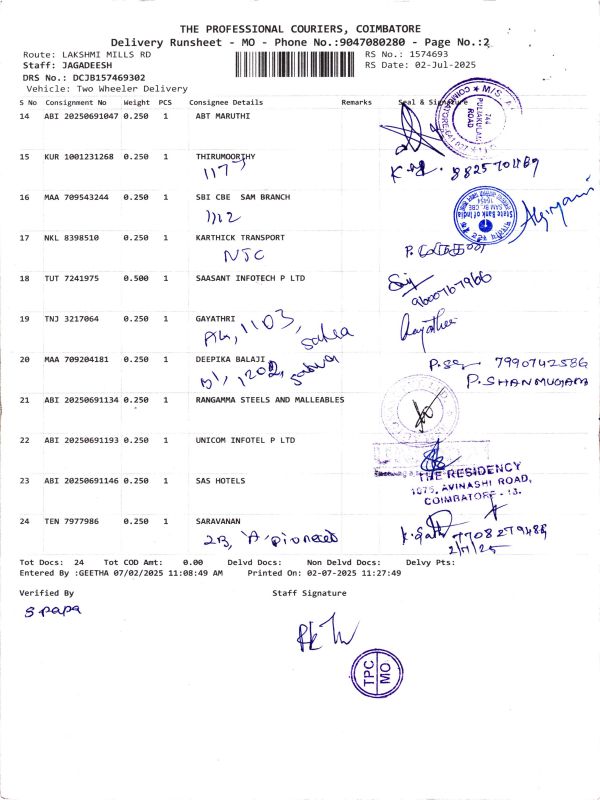 THE PROFESSIONAL COURIERS, COIMBATORE
Delivery Runsheet - MO - Phone No.:9047080280 - Page No.:2
Route: LAKSHMI MILLS RD RS No.: 1574693
Staff: JAGADEESH RS Date: 02-Jul-2025
DRS No.: DCJB157469302
Vehicle: Two Wheeler Delivery
S No Consignment No Weight PCS Consignee Details Remarks Seal & Signature
14 ABI 20250691047 0.250 1 ABT MARUTHI
PULIAKULAM
ROAD
15 KUR 1001231268 0.250 1 THIRUMOORTHY
1177
8825701169
16 MAA 709543244 0.250 1 SBI CBE SAM BRANCH
1112
State Bank of India
17 NKL 8398510 0.250 1 KARTHICK TRANSPORT
NTC
18 TUT 7241975 0.500 1 SAASANT INFOTECH P LTD
9600767966
19 TNJ 3217064 0.250 1 GAYATHRI
1103,
Gayathri
20 MAA 709204181 0.250 1 DEEPIKA BALAJI
1202,
7990742586
P. SHANMUGAM
21 ABI 20250691134 0.250 1 RANGAMMA STEELS AND MALLEABLES
22 ABI 20250691193 0.250 1 UNICOM INFOTEL P LTD
23 ABI 20250691146 0.250 1 SAS HOTELS
THE RESIDENCY
1076, AVINASHI ROAD,
COIMBATORE - 18.
24 TEN 7977986 0.250 1 SARAVANAN
2B, 'A',
7708279488
2/7/25
Tot Docs: 24 Tot COD Amt: 0.00 Delvd Docs: Non Delvd Docs: Delvy Pts:
Entered By :GEETHA 07/02/2025 11:08:49 AM Printed On: 02-07-2025 11:27:49
Verified By Staff Signature
S PAPA
TPC
MO